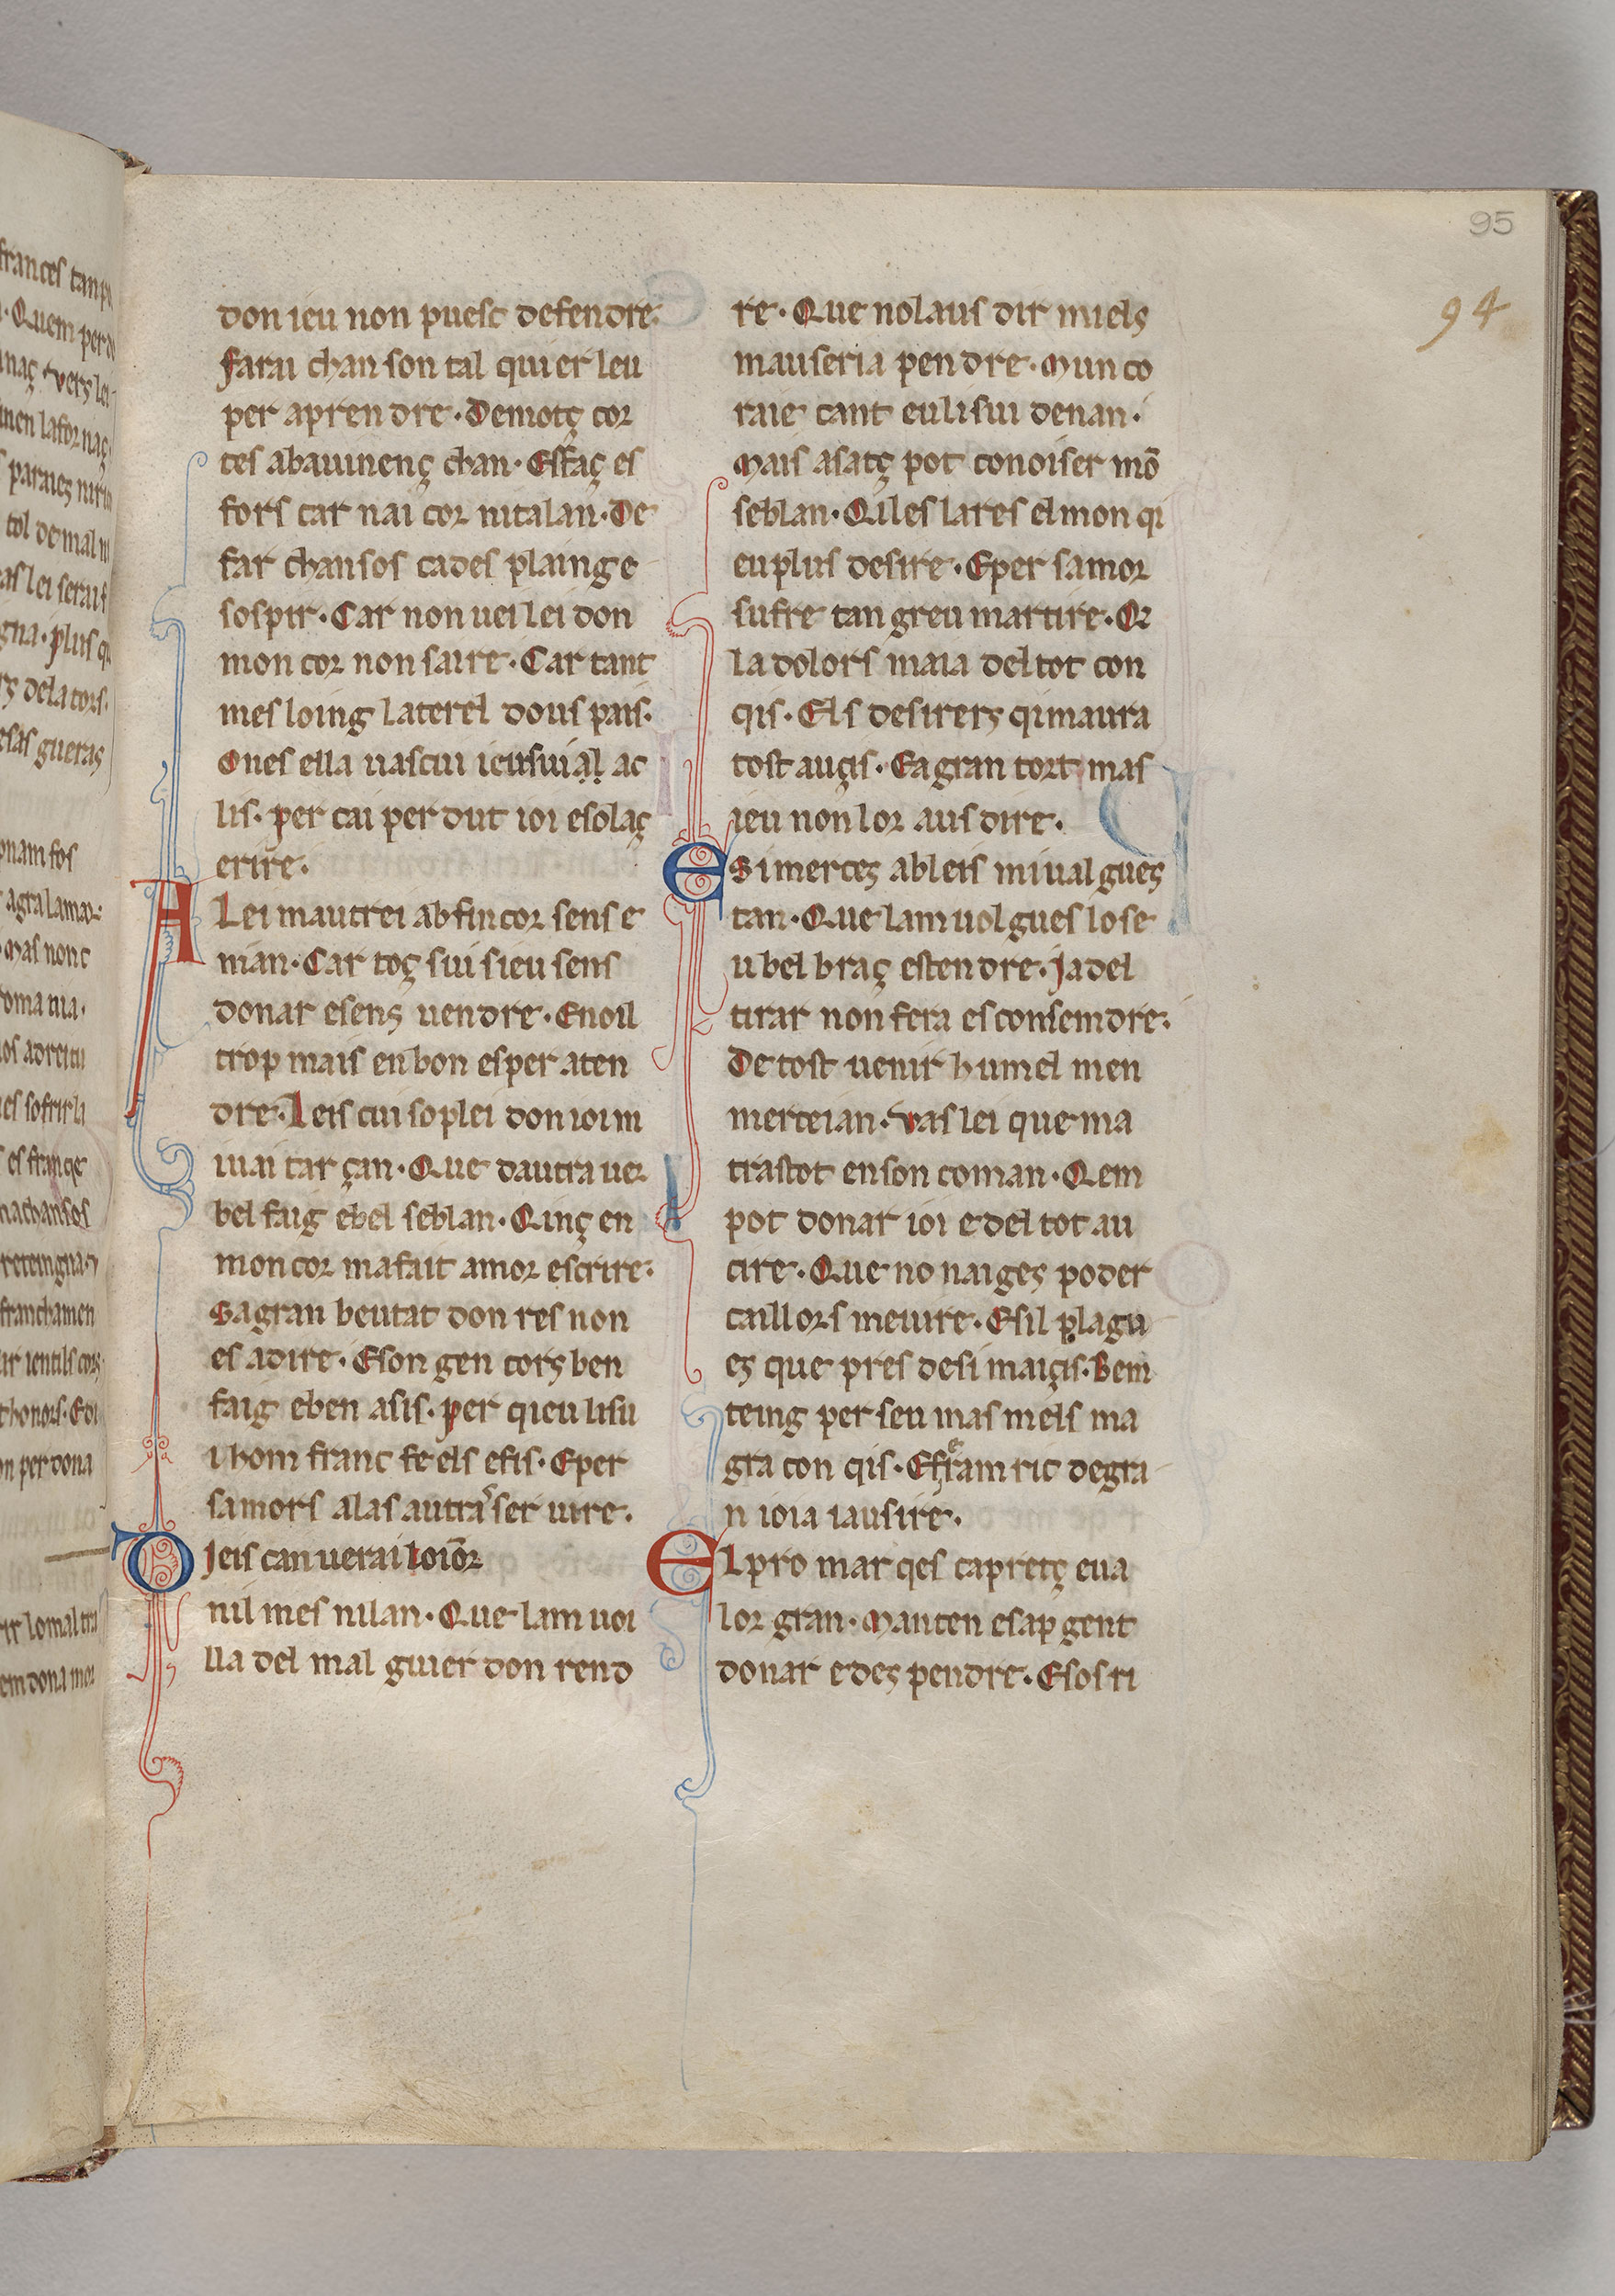 frances tan
Quem per
naç vers lei
men lafor naç
paraies
tol de mal
as lei serai
gna. plus q
dela tors.
esas gueras
onam fos
agra lamar
mas non c
oma nia.
os adreitu
es sofrir li
es franqe
nachansos
reteingna
franchamen
ir ientils cors
honors.
n per dona
ir lo mal tra
em dona mer
95
94
don ieu non puesc defendre.
farai chan son tal qui er leu
per apren dre. De motç cor
tes ab auinenç chan. Esfaç es
fors car nai cor ni talan. De
far chansos cades plaing e
sospir. Car non uei lei don
mon cor non saire. Car tant
mes loing laterel dous pais.
On es ella nascui ieu sui al ac
lis. per cai per dut ioi esolaç
erire.
A Lei mautrei ab fin cor sens e
nian. Car toç sui sieu sens
donar esens uendre. Enoil
trop mais en bon esper aten
dre. Leis cui soplei don ioi m
iuai tar çan. Que dautra uez
bel faig ebel seblan. Qinç en
mon cor ma fait amor escrire.
Sa gran beutat don res non
es adire. Eson gen cors ben
faig eben asis. per qieu lisu
i hom franc feels efis. Eper
samors alas autras ser uire.
D Ieis can uerai lo iōr
nil mes nilan. Que lam uoi
lla del mal guier don rend
re. Que nol aus dir miels
mauseria pen dre. Mun co
raie cant eu li sui denan.
Mais asatç pot conoiser mō
seblan. Qil es lares el mon qi
eu plus desire. Eper samor
sufre tan greu martire. Qe
la dolors maia del tot con
qis. Els desirers qi maura
tost auçis. Ea gran tort mas
ieu non lor aus dire.
E Si merces ableis mi ual gues
tan. Que lam uol gues lo se
u bel braç estendre. Ja del
tirar non fera esconsemdre.
De tost uenir humel men
merceian. Vas lei que ma
trastot en son coman. Qem
pot donar ioi e del tot au
cire. Que no naiges poder
caillors meuire. Esil plagu
es que pres de si maiçis. Bem
teing per seu mas mels ma
gra con qis. Efferam ric de gra
n ioia iausire.
E L pro mar qes ca pretç eua
lor gran. Manten esap gent
donar edes pendre. Esos ri